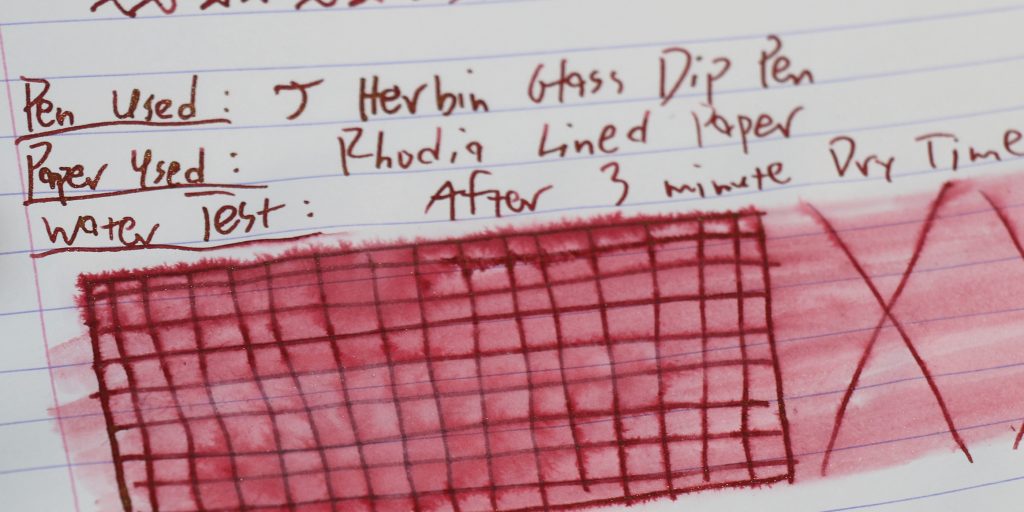 Pen Used: J Herbin Glass Dip Pen
Paper Used: Rhodia Lined Paper
Water Test: After 3 minute Dry Time